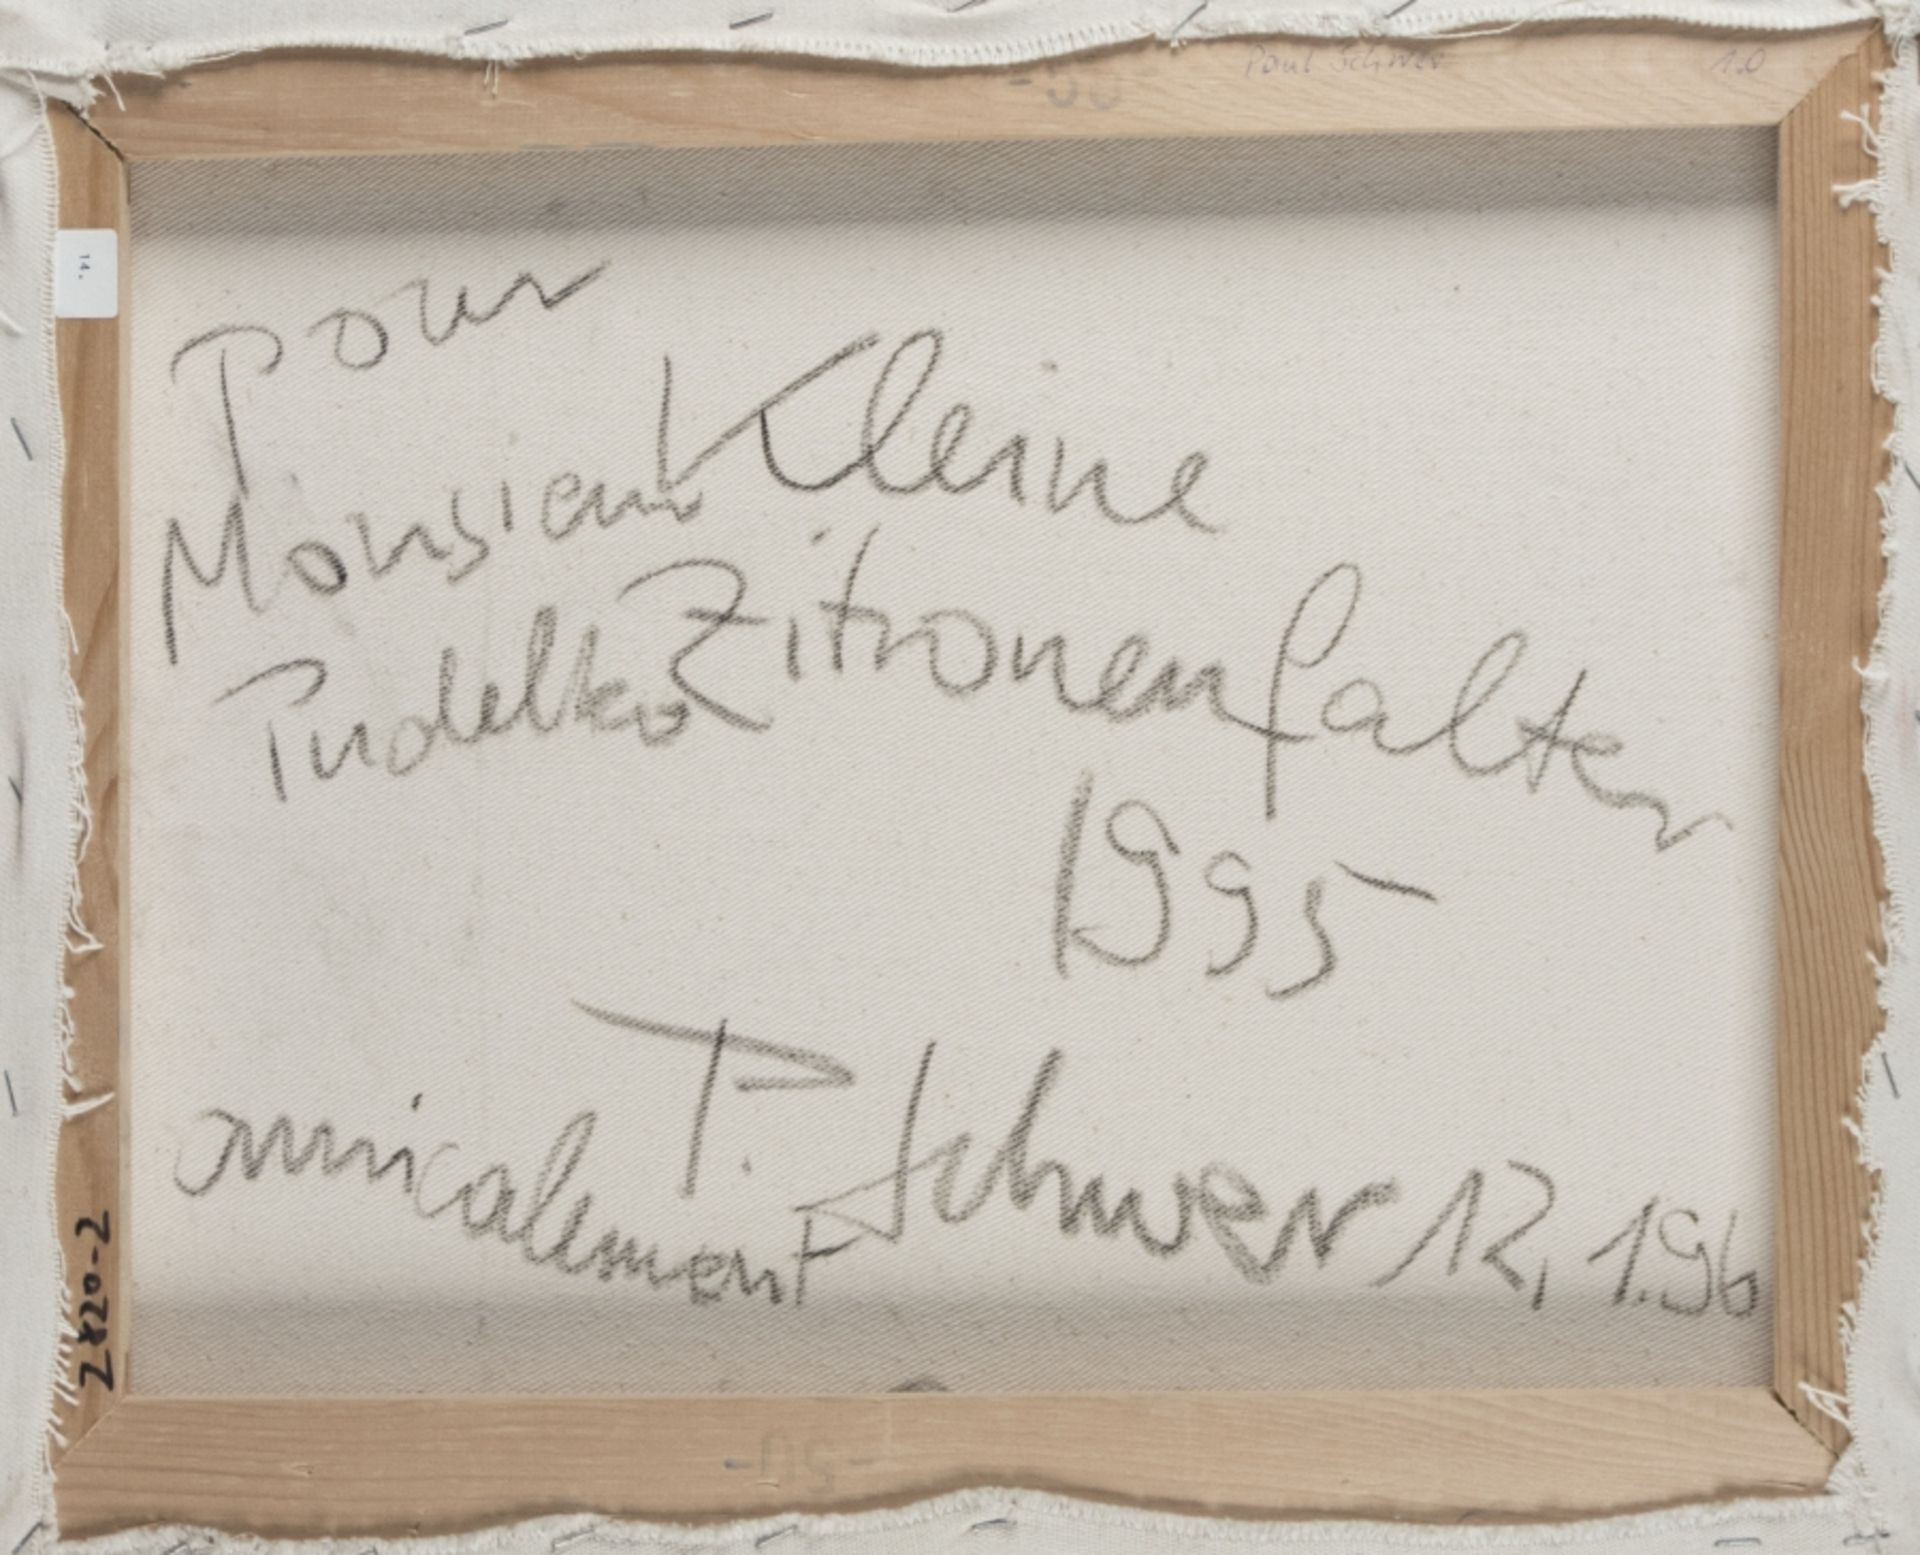 Paul Schwer 1.0
-50-
14.
Pour
Monsieur Kleine
Pudelko Zitronenfalter
1995
P. Schwer 12, 1.96
amicalement
2820-2
-50-